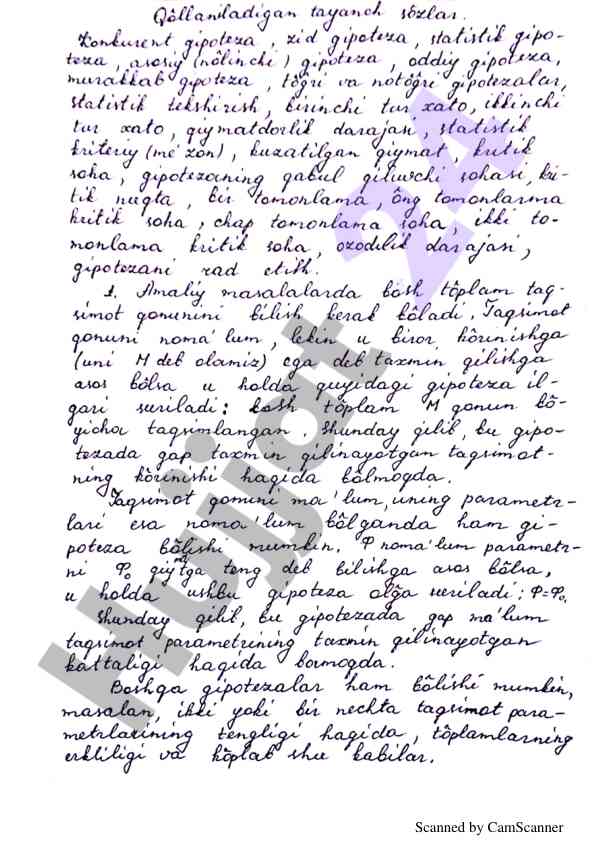 Qôllaniladigan tayanch sôzlar.
Konkurent gipoteza, zid gipoteza, statistik gipo-
teza, asosiy (nôlinchi) gipoteza, oddiy gipoteza,
murakkab gipoteza, tôğri va notôğri gipotezalar,
statistik tekshirish, birinchi tur xato, ikkinchi
tur xato, qiymatdorlik darajasi, statistik
kriteriy (me'zon), kuzatilgan qiymat, kritik
soha, gipotezaning qabul qiluvchi sohasi, kri-
tik nuqta, bir tomonlama, ông tomonlama
kritik soha, chap tomonlama soha, ikki to-
monlama kritik soha, ozodlik darajasi,
gipotezani rad etish.
1. Amaliy masalalarda bosh tôplam taq-
simot qonunini bilish kerak bôladi. Taqsimot
qonuni noma'lum, lekin u biror kôrinishga
(uni M deb olamiz) ega deb taxmin qilishga
asos bôlsa u holda quyidagi gipoteza il-
gari suriladi: bosh tôplam M qonun bô-
yicha taqsimlangan. Shunday qilib, bu gipo-
tezada gap taxmin qilinayotgan taqsimot-
ning kôrinishi haqida bôlmoqda.
Taqsimot qonuni ma'lum, uning parametr-
lari esa noma'lum bôlganda ham gi-
poteza bôlishi mumkin. φ noma'lum parametr-
ni φ₀ qiymtga teng deb bilishga asos bôlsa,
u holda ushbu gipoteza olğa suriladi: φ=φ₀
Shunday qilib, bu gipotezada gap ma'lum
taqsimot parametrining taxmin qilinayotgan
kattaligi haqida bormoqda.
Boshqa gipotezalar ham bôlishi mumkin,
masalan, ikki yoki bir nechta taqsimot para-
metrlarining tengligi haqida, tôplamlarning
erkliligi va kôplab shu kabilar.
Hujjat 24
Scanned by CamScanner